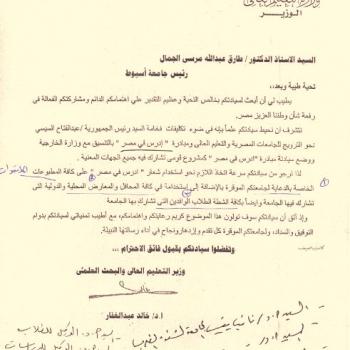 وزارة التعليم العالى
الوزيـــر
السيد الاستاذ الدكتور / طارق عبدالله مرسى الجمال
رئيس جامعة أسيوط
تحية طيبة وبعد،،
يطيب لي أن أبعث لسيادتكم بخالص التحية وعظيم التقدير علي اهتمامكم الدائم ومشاركتكم الفعالة في
رفعة شأن وطننا العزيز مصر.
نتشرف ان نحيط سيادتكم علماً بأنه في ضوء تكليفات فخامة السيد رئيس الجمهورية / عبدالفتاح السيسي
نحو الترويج للجامعات المصرية والتعليم العالى ومبادرة " إدرس في مصر " بالتنسيق مع وزارة الخارجية
ووضع سيادته مبادرة "ادرس في مصر" كمشروع قومي تشارك فيه جميع الجهات المعنية.
لذا نرجو من سيادتكم سرعة اتخاذ اللازم نحو استخدام شعار " ادرس في مصر" علي كافة المطبوعات
الخاصة بالدعاية لجامعتكم الموقرة بالإضافة إلي إستخدامة في كافة المحافل والمعارض المحلية والدولية التى
تشارك فيها الجامعة وايضاً بكافة انشطة الطلاب الوافدين التى تشارك بها الجامعة
وإذ أثق أن سيادتكم سوف تولون هذا الموضوع كريم رعايتكم واهتمامكم، مع أطيب تمنياتي لسيادتكم بدوام
التوفيق والسداد، ولجامعتكم الموقرة كل تقدم وإزدهار ونجاح في أداء رسالتها النبيلة.
وتفضلوا سيادتكم بقبول فائق الاحترام ،،،
وزير التعليم العالى والبحث العلمى
أ.د/ خالد عبدالغفار